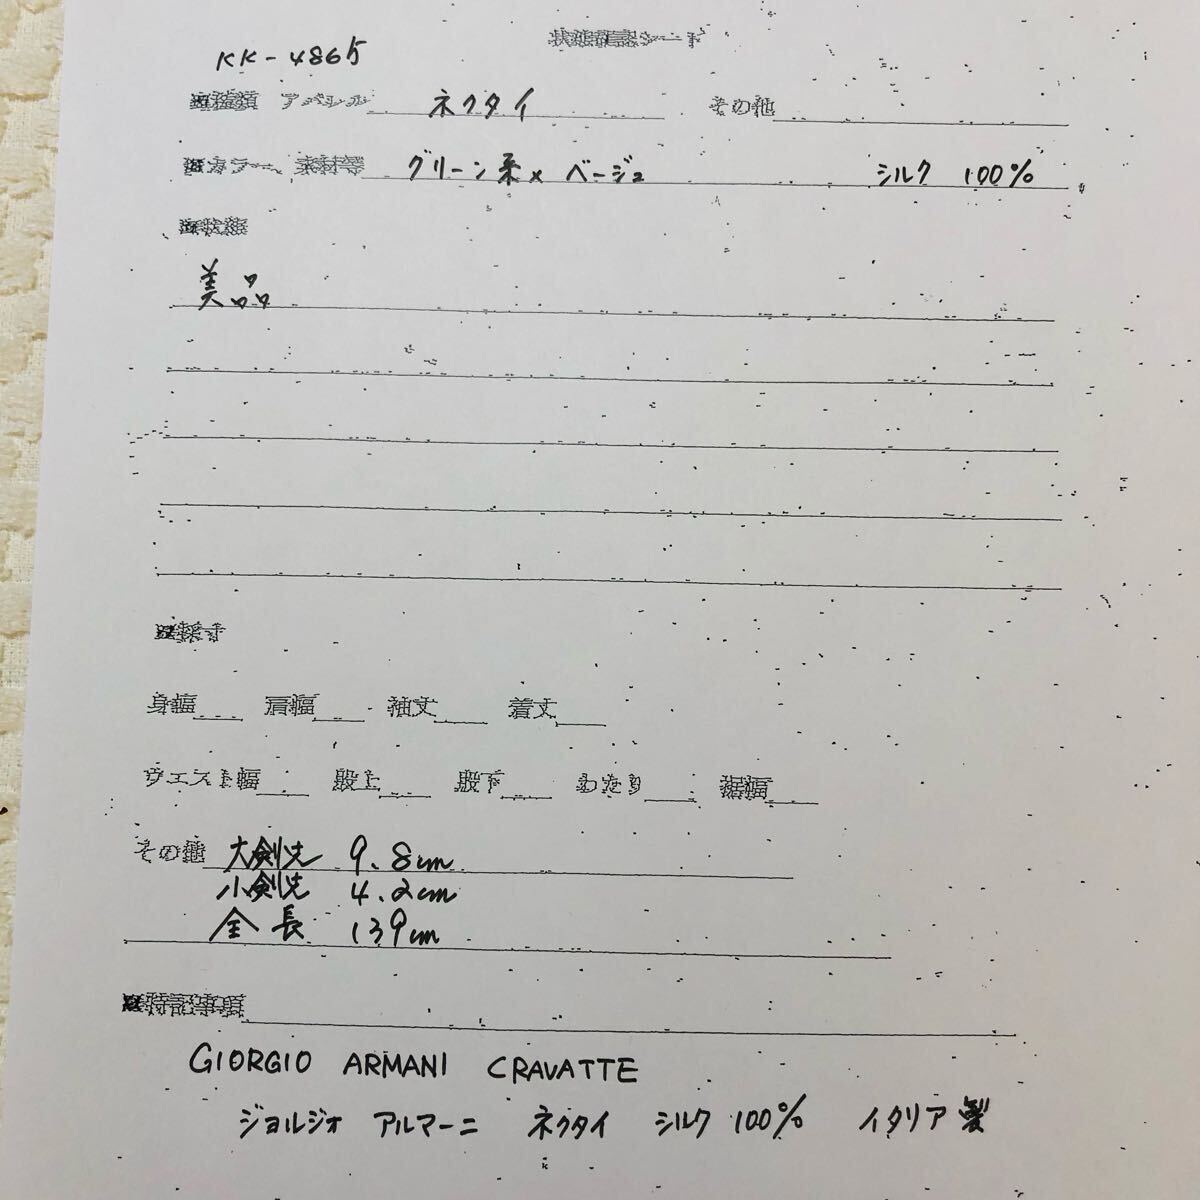 状態確認シート
KK-4865
■種類 アパレル ネクタイ その他
■カラー、素材等 グリーン系×ベージュ シルク 100%
■状態
美品
■採寸
身幅 肩幅 袖丈 着丈
ウエスト幅 股上 股下 わたり 裾幅
その他 大剣先 9.8cm
小剣先 4.2cm
全長 139cm
■特記事項
GIORGIO ARMANI CRAVATTE
ジョルジオ アルマーニ ネクタイ シルク 100% イタリア製